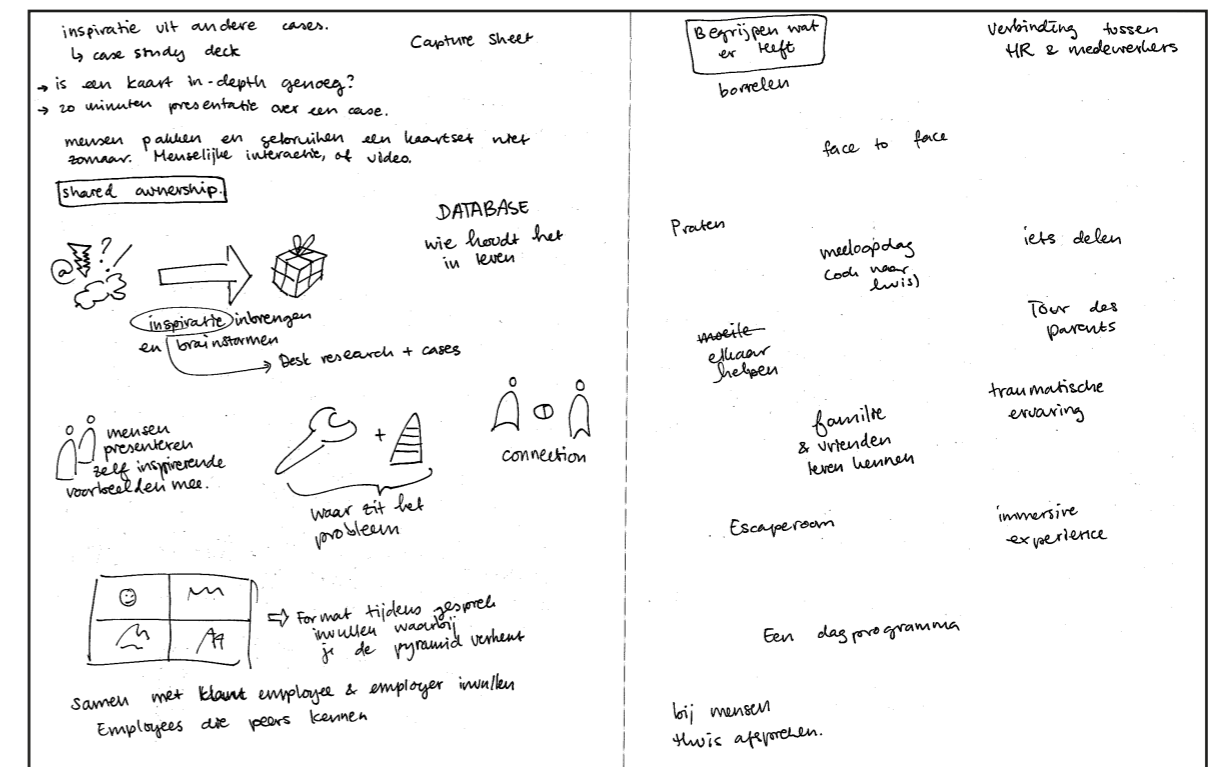 inspiratie uit andere cases.
↳ case study deck
Capture Sheet
→ is een kaart in-depth genoeg?
→ 20 minuten presentatie over een case.
mensen pakken en gebruiken een kaartset niet
zomaar. Menselijke interactie, of video.
shared ownership.
DATABASE
wie houdt het
in leven
@ ? ! /
inspiratie inbrengen
en brainstormen
→ Desk research + cases
mensen
presenteren
zelf inspirerende
voorbeelden mee.
+
waar zit het
probleem
connection
⇒ Format tijdens gesprek
invullen waarbij
je de pyramid verkent
Samen met klant employee & employer invullen
Employees die peers kennen
Begrijpen wat
er leeft
borrelen
verbinding tussen
HR & medewerkers
face to face
Praten
meeloopdag
(ook naar
huis)
iets delen
Tour des
parents
moeite
elkaar
helpen
traumatische
ervaring
familie
& vrienden
leren kennen
Escaperoom
immersive
experience
Een dagprogramma
bij mensen
thuis afspreken.